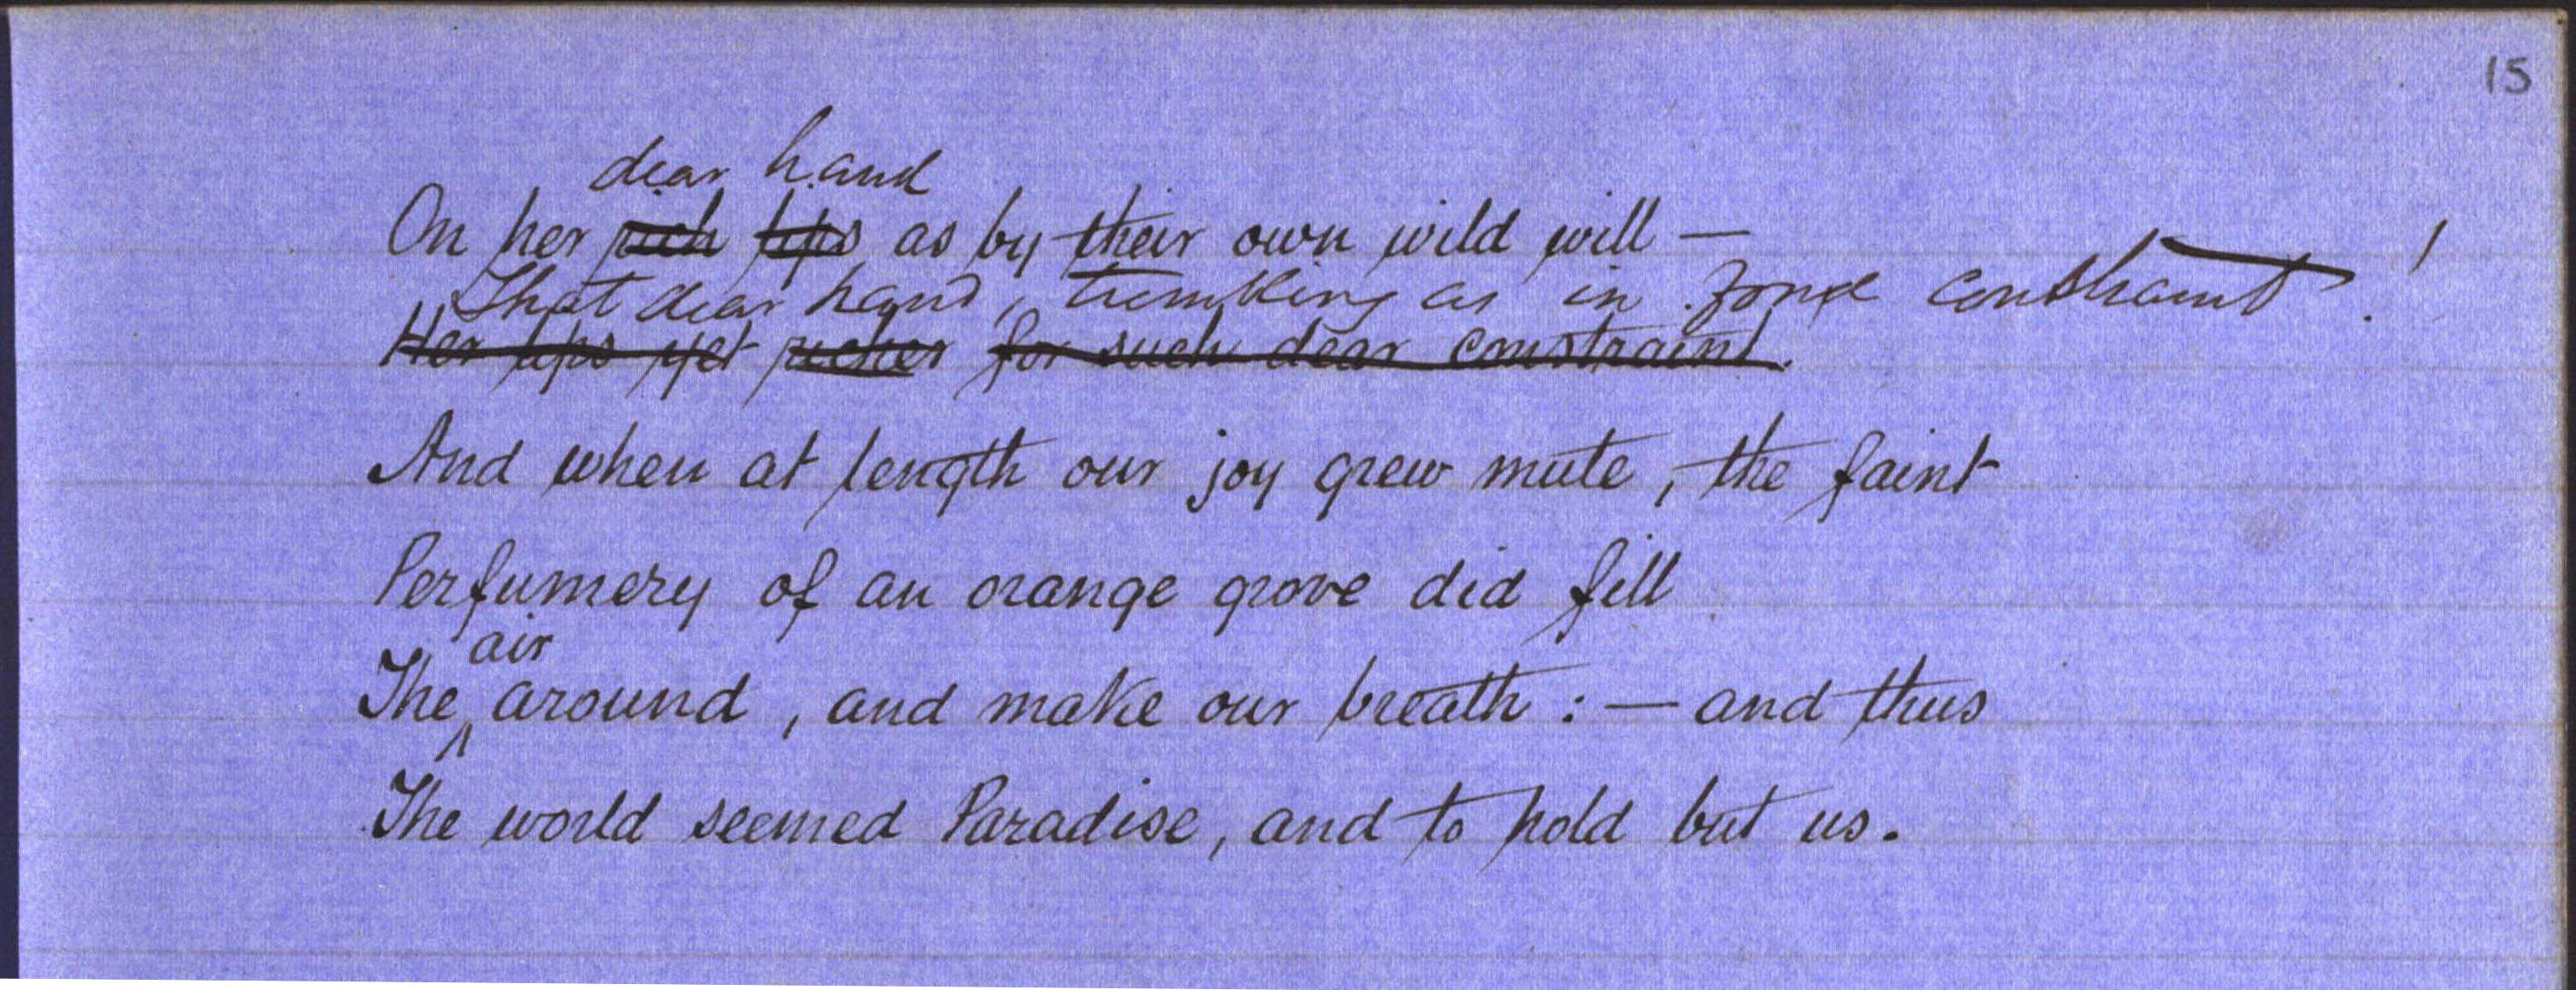 15
dear hand
On her rich lips as by their own wild will —
That dear hand, trembling as in fond constraint!
Her lips yet richer for such dear constraint.
And when at length our joy grew mute, the faint
Perfumery of an orange grove did fill
air
The around, and make our breath : — and thus
The world seemed Paradise, and to hold but us.